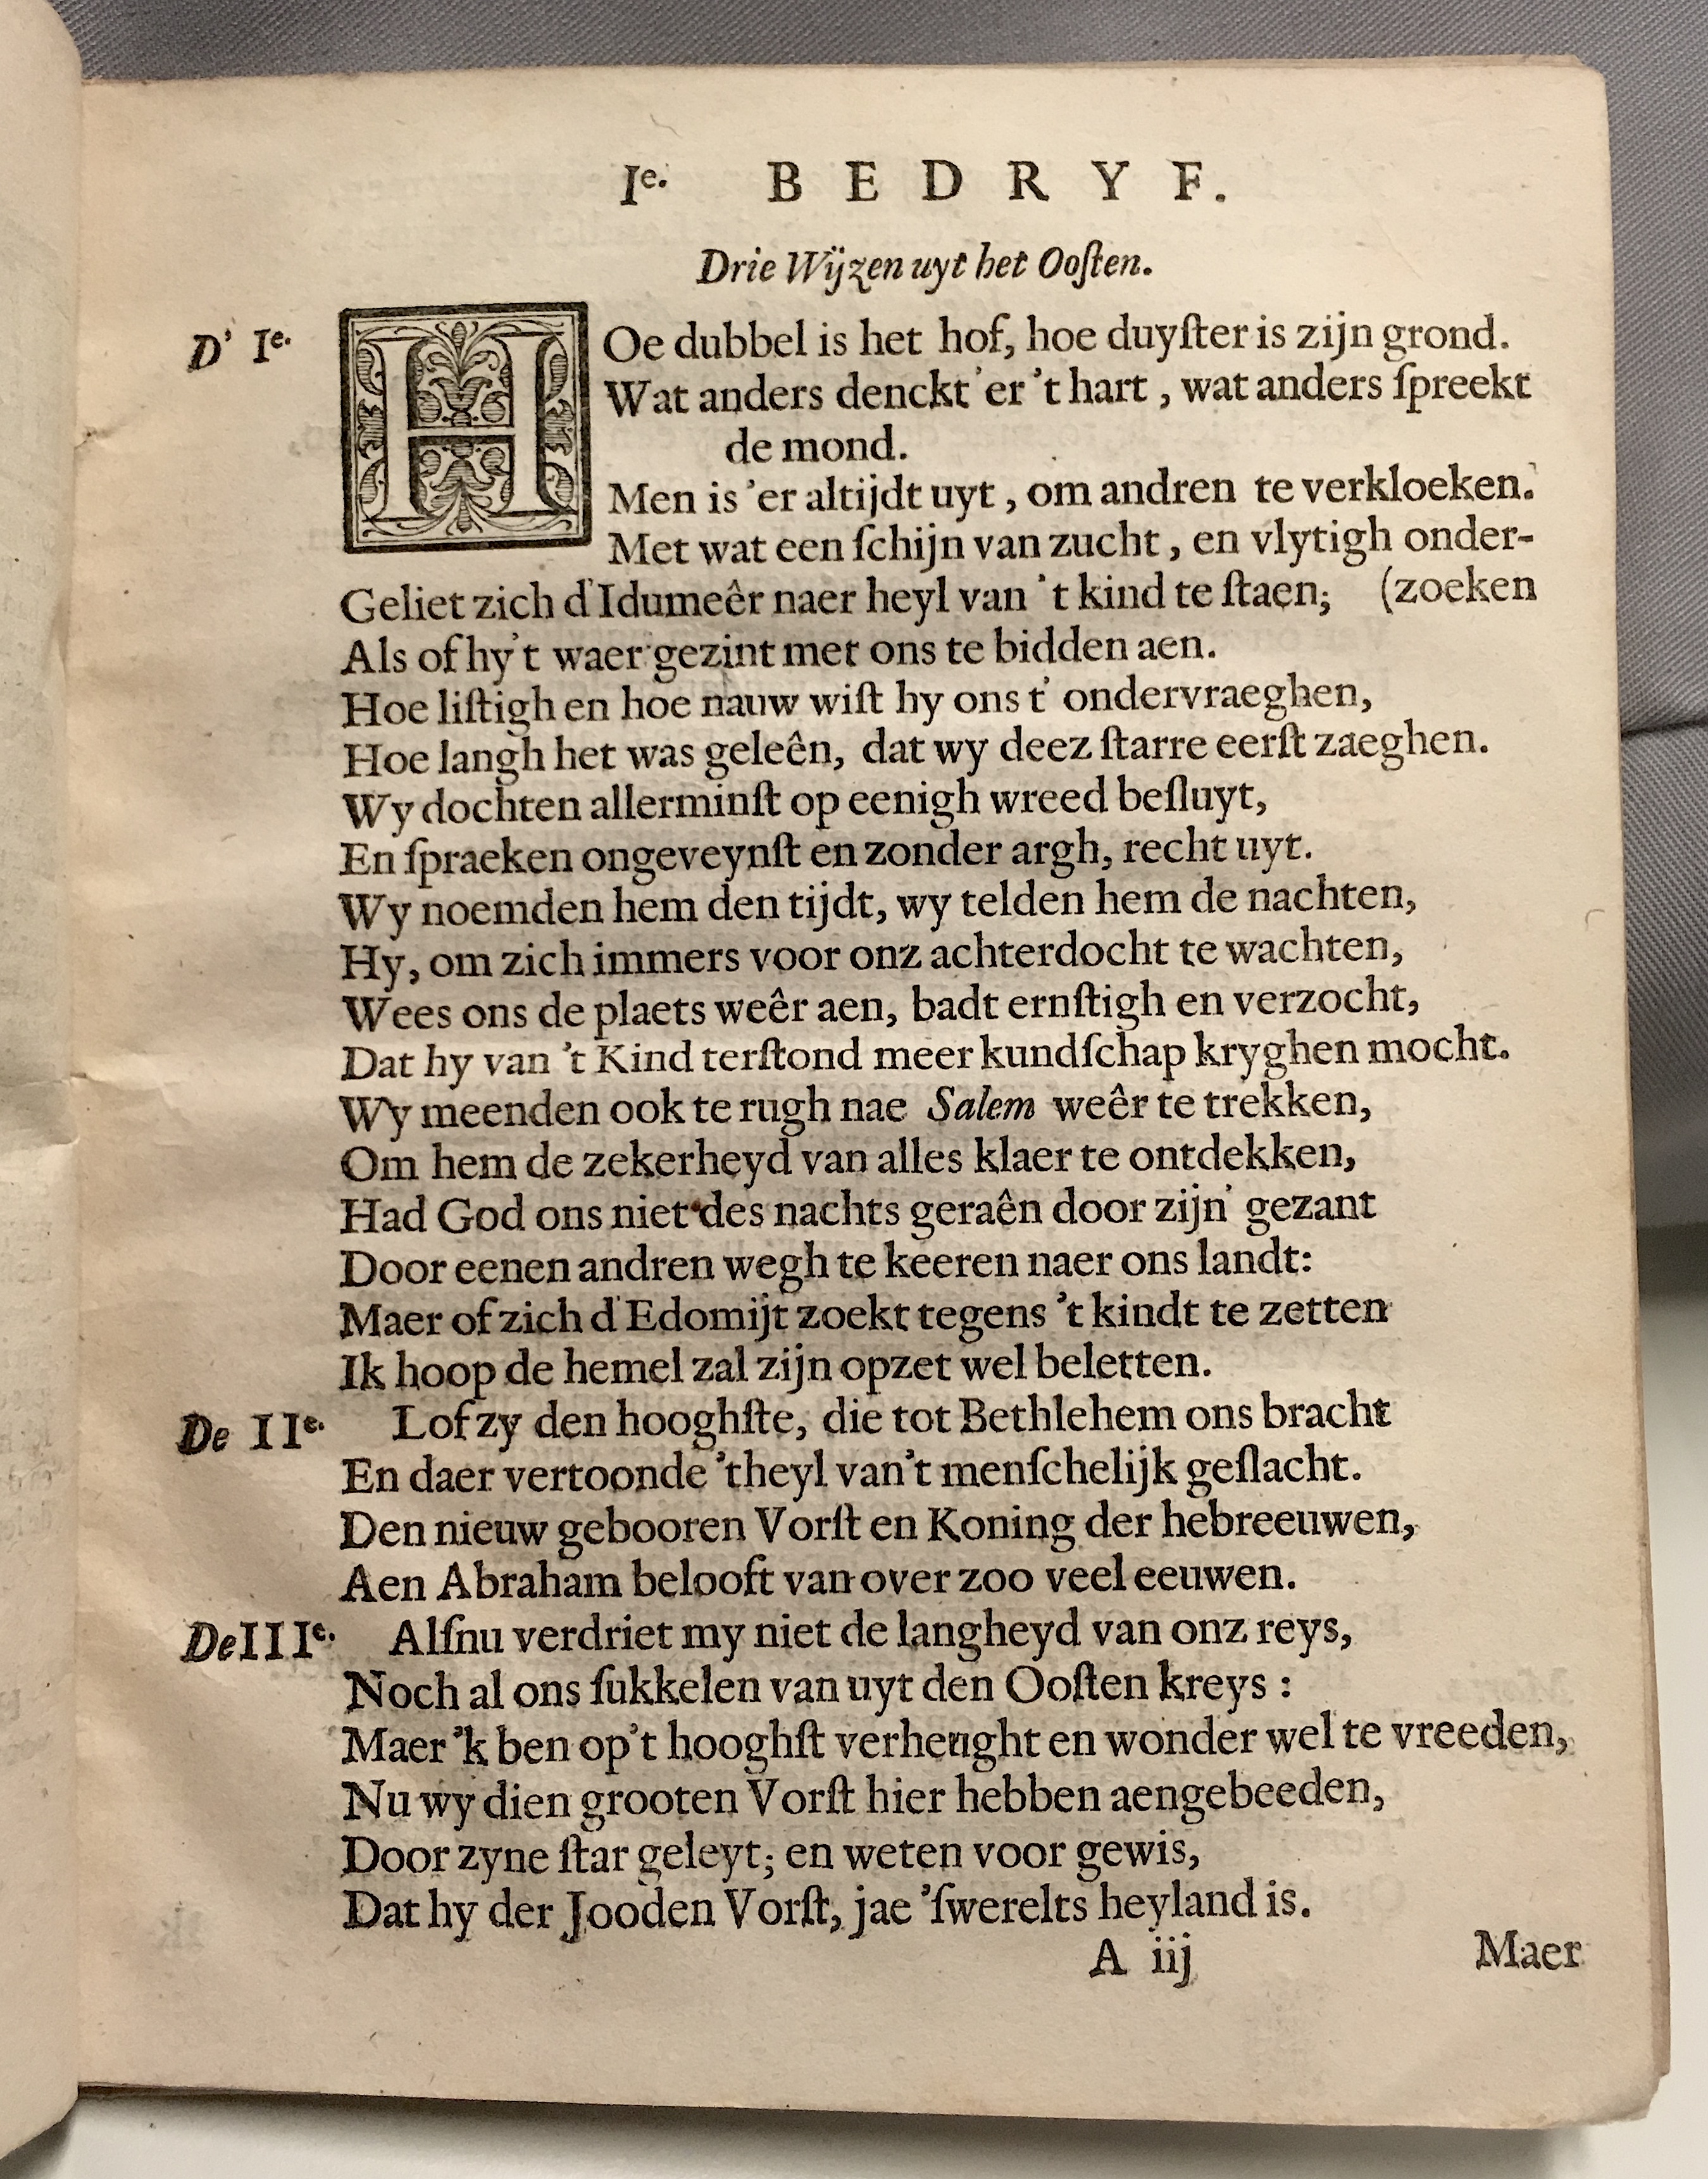 Ie. BEDRYF.
Drie Wijzen uyt het Ooſten.
D' Ie. HOe dubbel is het hof, hoe duyſter is zijn grond.
Wat anders denckt 'er 't hart, wat anders ſpreekt
de mond.
Men is 'er altijdt uyt, om andren te verkloeken.
Met wat een ſchijn van zucht, en vlytigh onder-
Geliet zich d'Idumeêr naer heyl van 't kind te ſtaen; (zoeken
Als of hy't waer gezint met ons te bidden aen.
Hoe liſtigh en hoe nauw wiſt hy ons t' ondervraeghen,
Hoe langh het was geleên, dat wy deez ſtarre eerſt zaeghen.
Wy dochten allerminſt op eenigh wreed beſluyt,
En ſpraeken ongeveynſt en zonder argh, recht uyt.
Wy noemden hem den tijdt, wy telden hem de nachten,
Hy, om zich immers voor onz achterdocht te wachten,
Wees ons de plaets weêr aen, badt ernſtigh en verzocht,
Dat hy van 't Kind terſtond meer kundſchap kryghen mocht.
Wy meenden ook te rugh nae Salem weêr te trekken,
Om hem de zekerheyd van alles klaer te ontdekken,
Had God ons niet des nachts geraên door zijn' gezant
Door eenen andren wegh te keeren naer ons landt:
Maer of zich d'Edomijt zoekt tegens 't kindt te zetten
Ik hoop de hemel zal zijn opzet wel beletten.
De IIe. Lof zy den hooghſte, die tot Bethlehem ons bracht
En daer vertoonde 'theyl van't menſchelijk geſlacht.
Den nieuw gebooren Vorſt en Koning der hebreeuwen,
Aen Abraham belooft van over zoo veel eeuwen.
De IIIe. Alſnu verdriet my niet de langheyd van onz reys,
Noch al ons ſukkelen van uyt den Ooſten kreys:
Maer 'k ben op't hooghſt verheught en wonder wel te vreeden,
Nu wy dien grooten Vorſt hier hebben aengebeeden,
Door zyne ſtar geleyt; en weten voor gewis,
Dat hy der Jooden Vorſt, jae 'ſwerelts heyland is.
A iij Maer